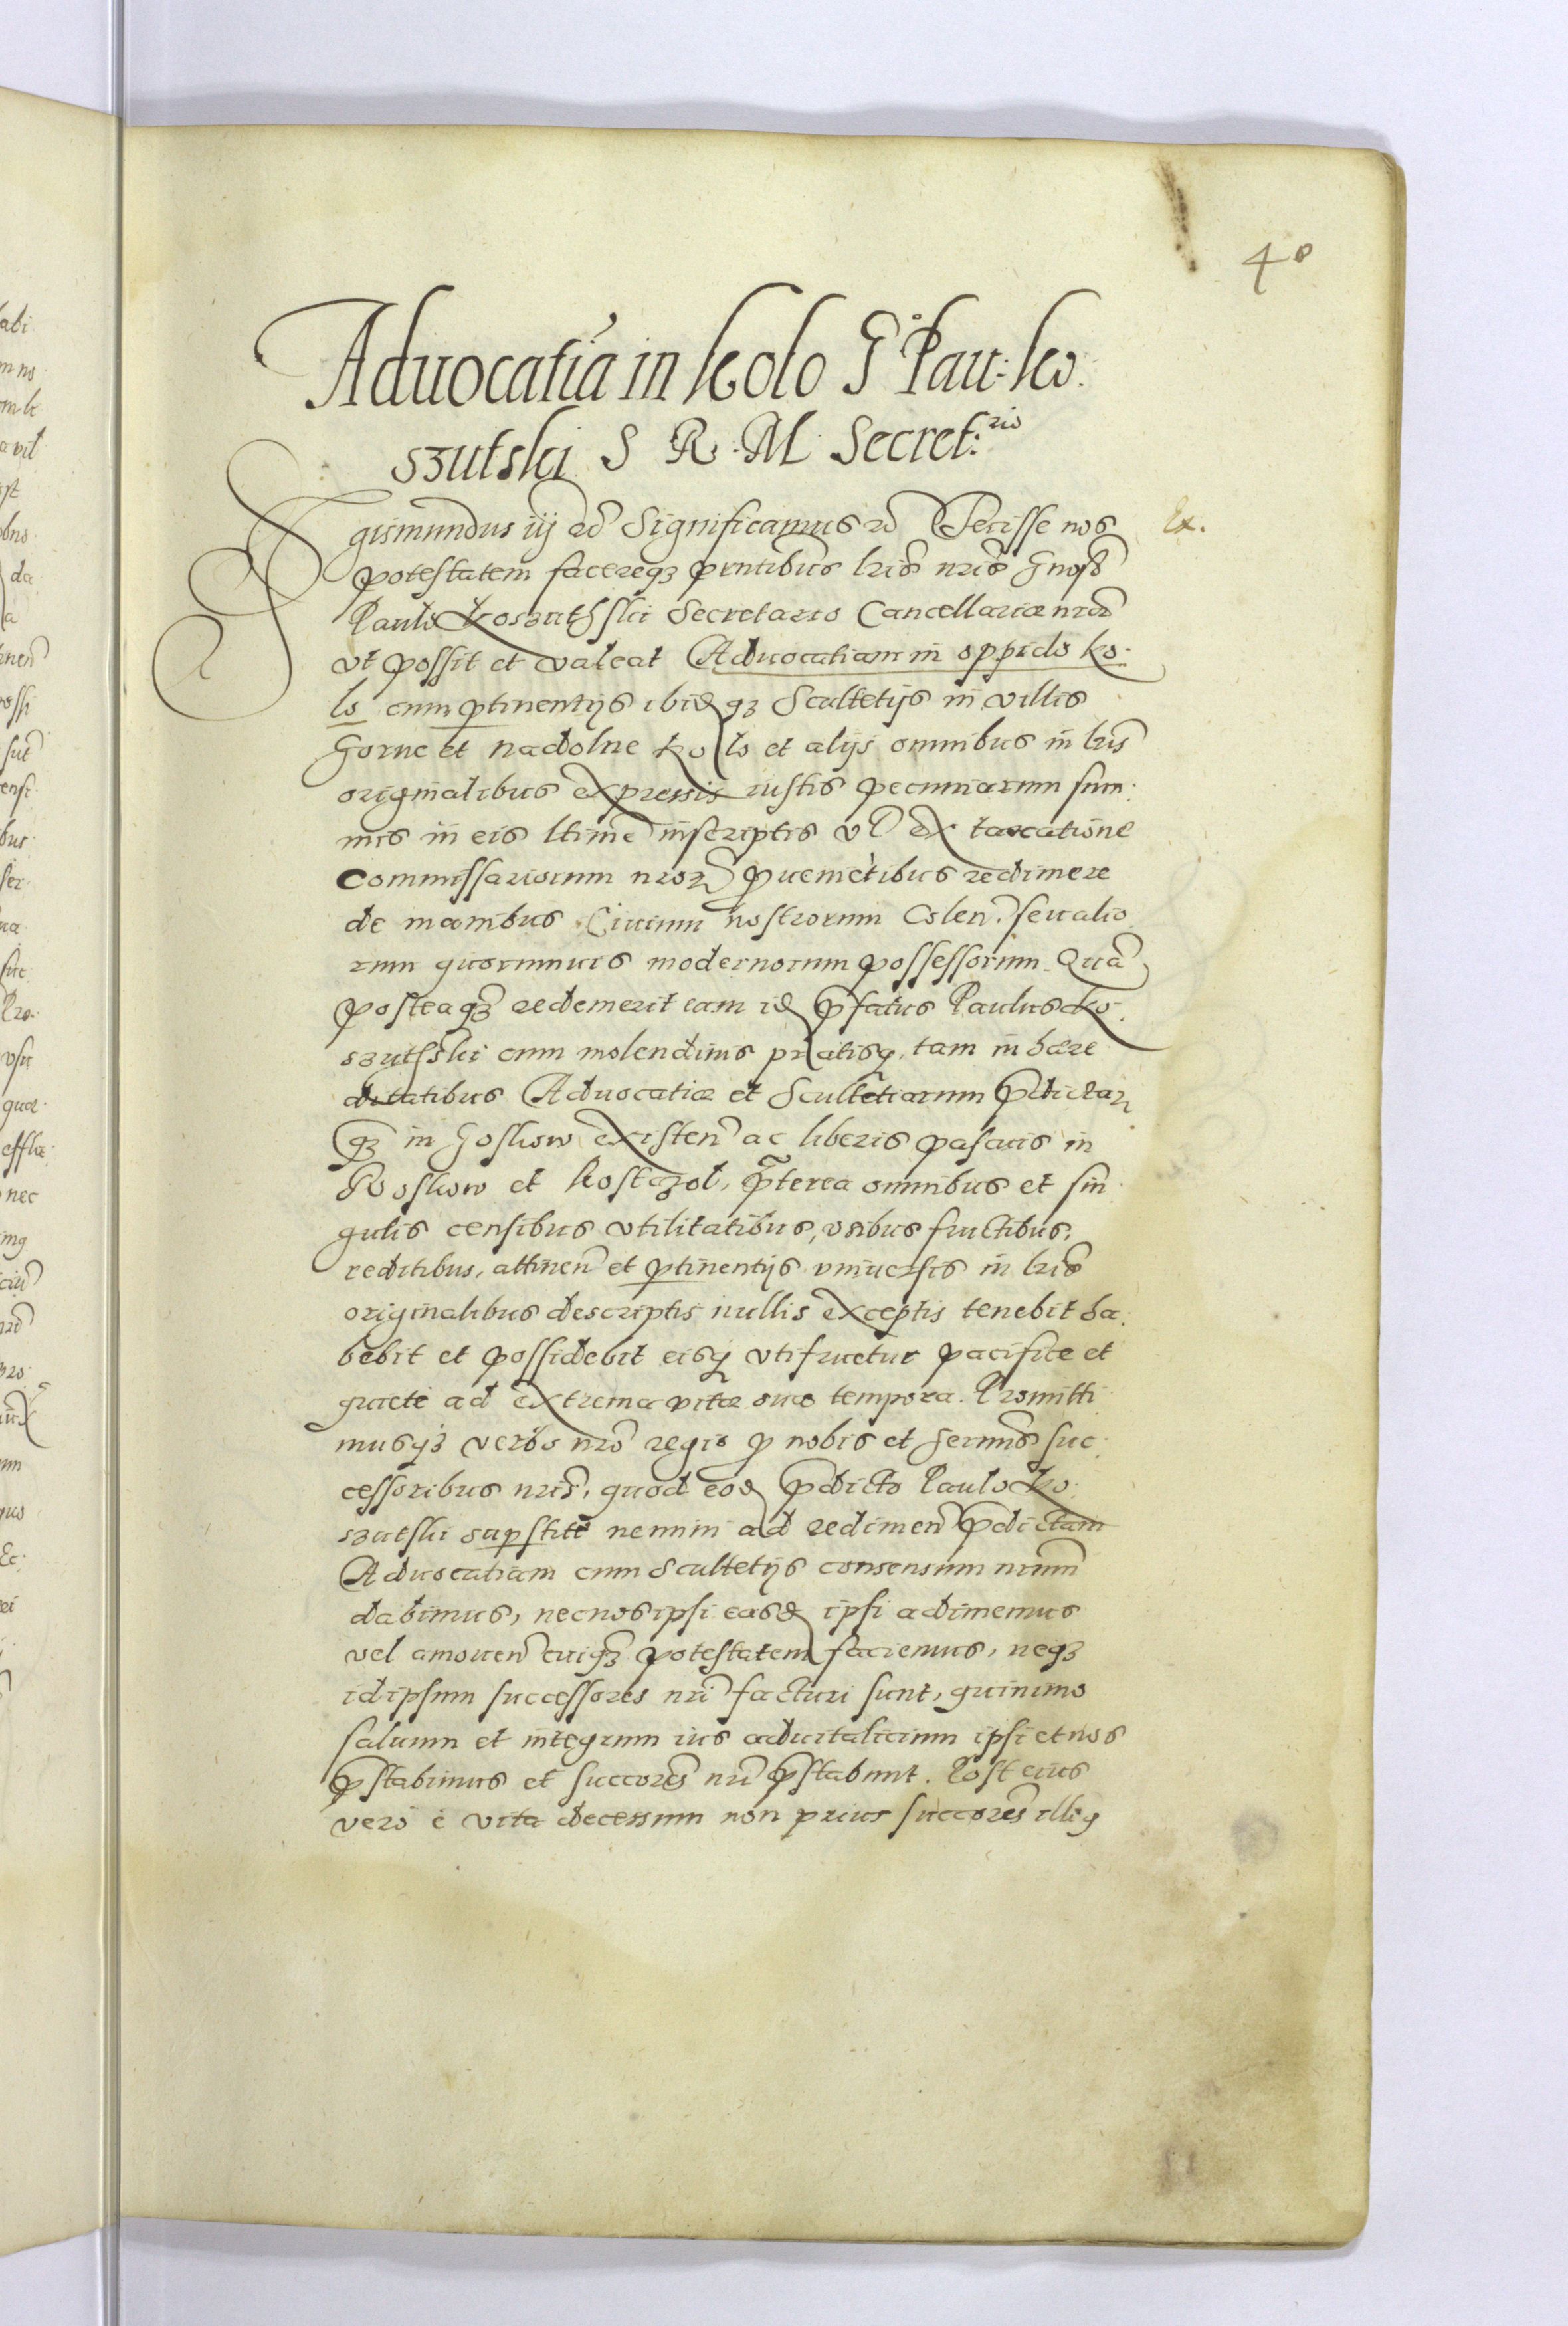 40
Aduocatia in Kolo G. Pau: Ko:
szutski S R. M. Secret:rio
Sigismundus iij etc Significamus etc Fecisse nos
Ex.
potestatem facereqз pntibus lris nris Gnoso
Paulo Koszuthski Secretario Cancellariæ nræ
vt possit et valeat Aduocatiam in oppido Ko-
lo cum ptinentijs ibidqз Scultetijs in villis
Gorne et nadolne Kolo et alijs omnibus in lris
originalibus expressis iustis pecuniarum sum:
mis in eis ltime inscriptis vl ex taxatione
Commissariorum nror puenietibus redimere
de manibus Ciuium nostrorum Colen. seu alio
rum quorumuis modernorum possessorum. Quã
posteaqз redemerit eam id pfatus Paulus Ko:
szuthski cum molendinis pratisq, tam in hære
ditatibus Aduocatiæ et Scultetiarum pdictar
qз in Goskow existen ac liberis pascuis in
Goskow et Kostazol, pterea omnibus et sin
gulis censibus vtilitatibus, vsibus fructibus,
reditibus, attinen et ptinentijs vniuersis in lris
originalibus descriptis nullis exceptis tenebit ha:
bebit et possidebit eisq vtifruetur pacifice et
quiete ad extrema vitæ suæ tempora. Promitti
musqз verbo nro regio p nobis et Sermis suc:
cessoribus nris, quod eod pdicto Paulo Ko:
szutski supstite nemini ad redimen pdictam
Aduocatiam cum Scultetijs consensum nrum
dabimus, nec nos ipsi easd ipsi adimemus
vel amouen cuiqз potestatem faciemus, neqз
idipsum successores nri facturi sunt, quinimo
saluum et integrum ius aduitalicium ipsi et nos
pstabimus et succores nri pstabunt. Post eius
vero è vita decessum non prius succores illiq